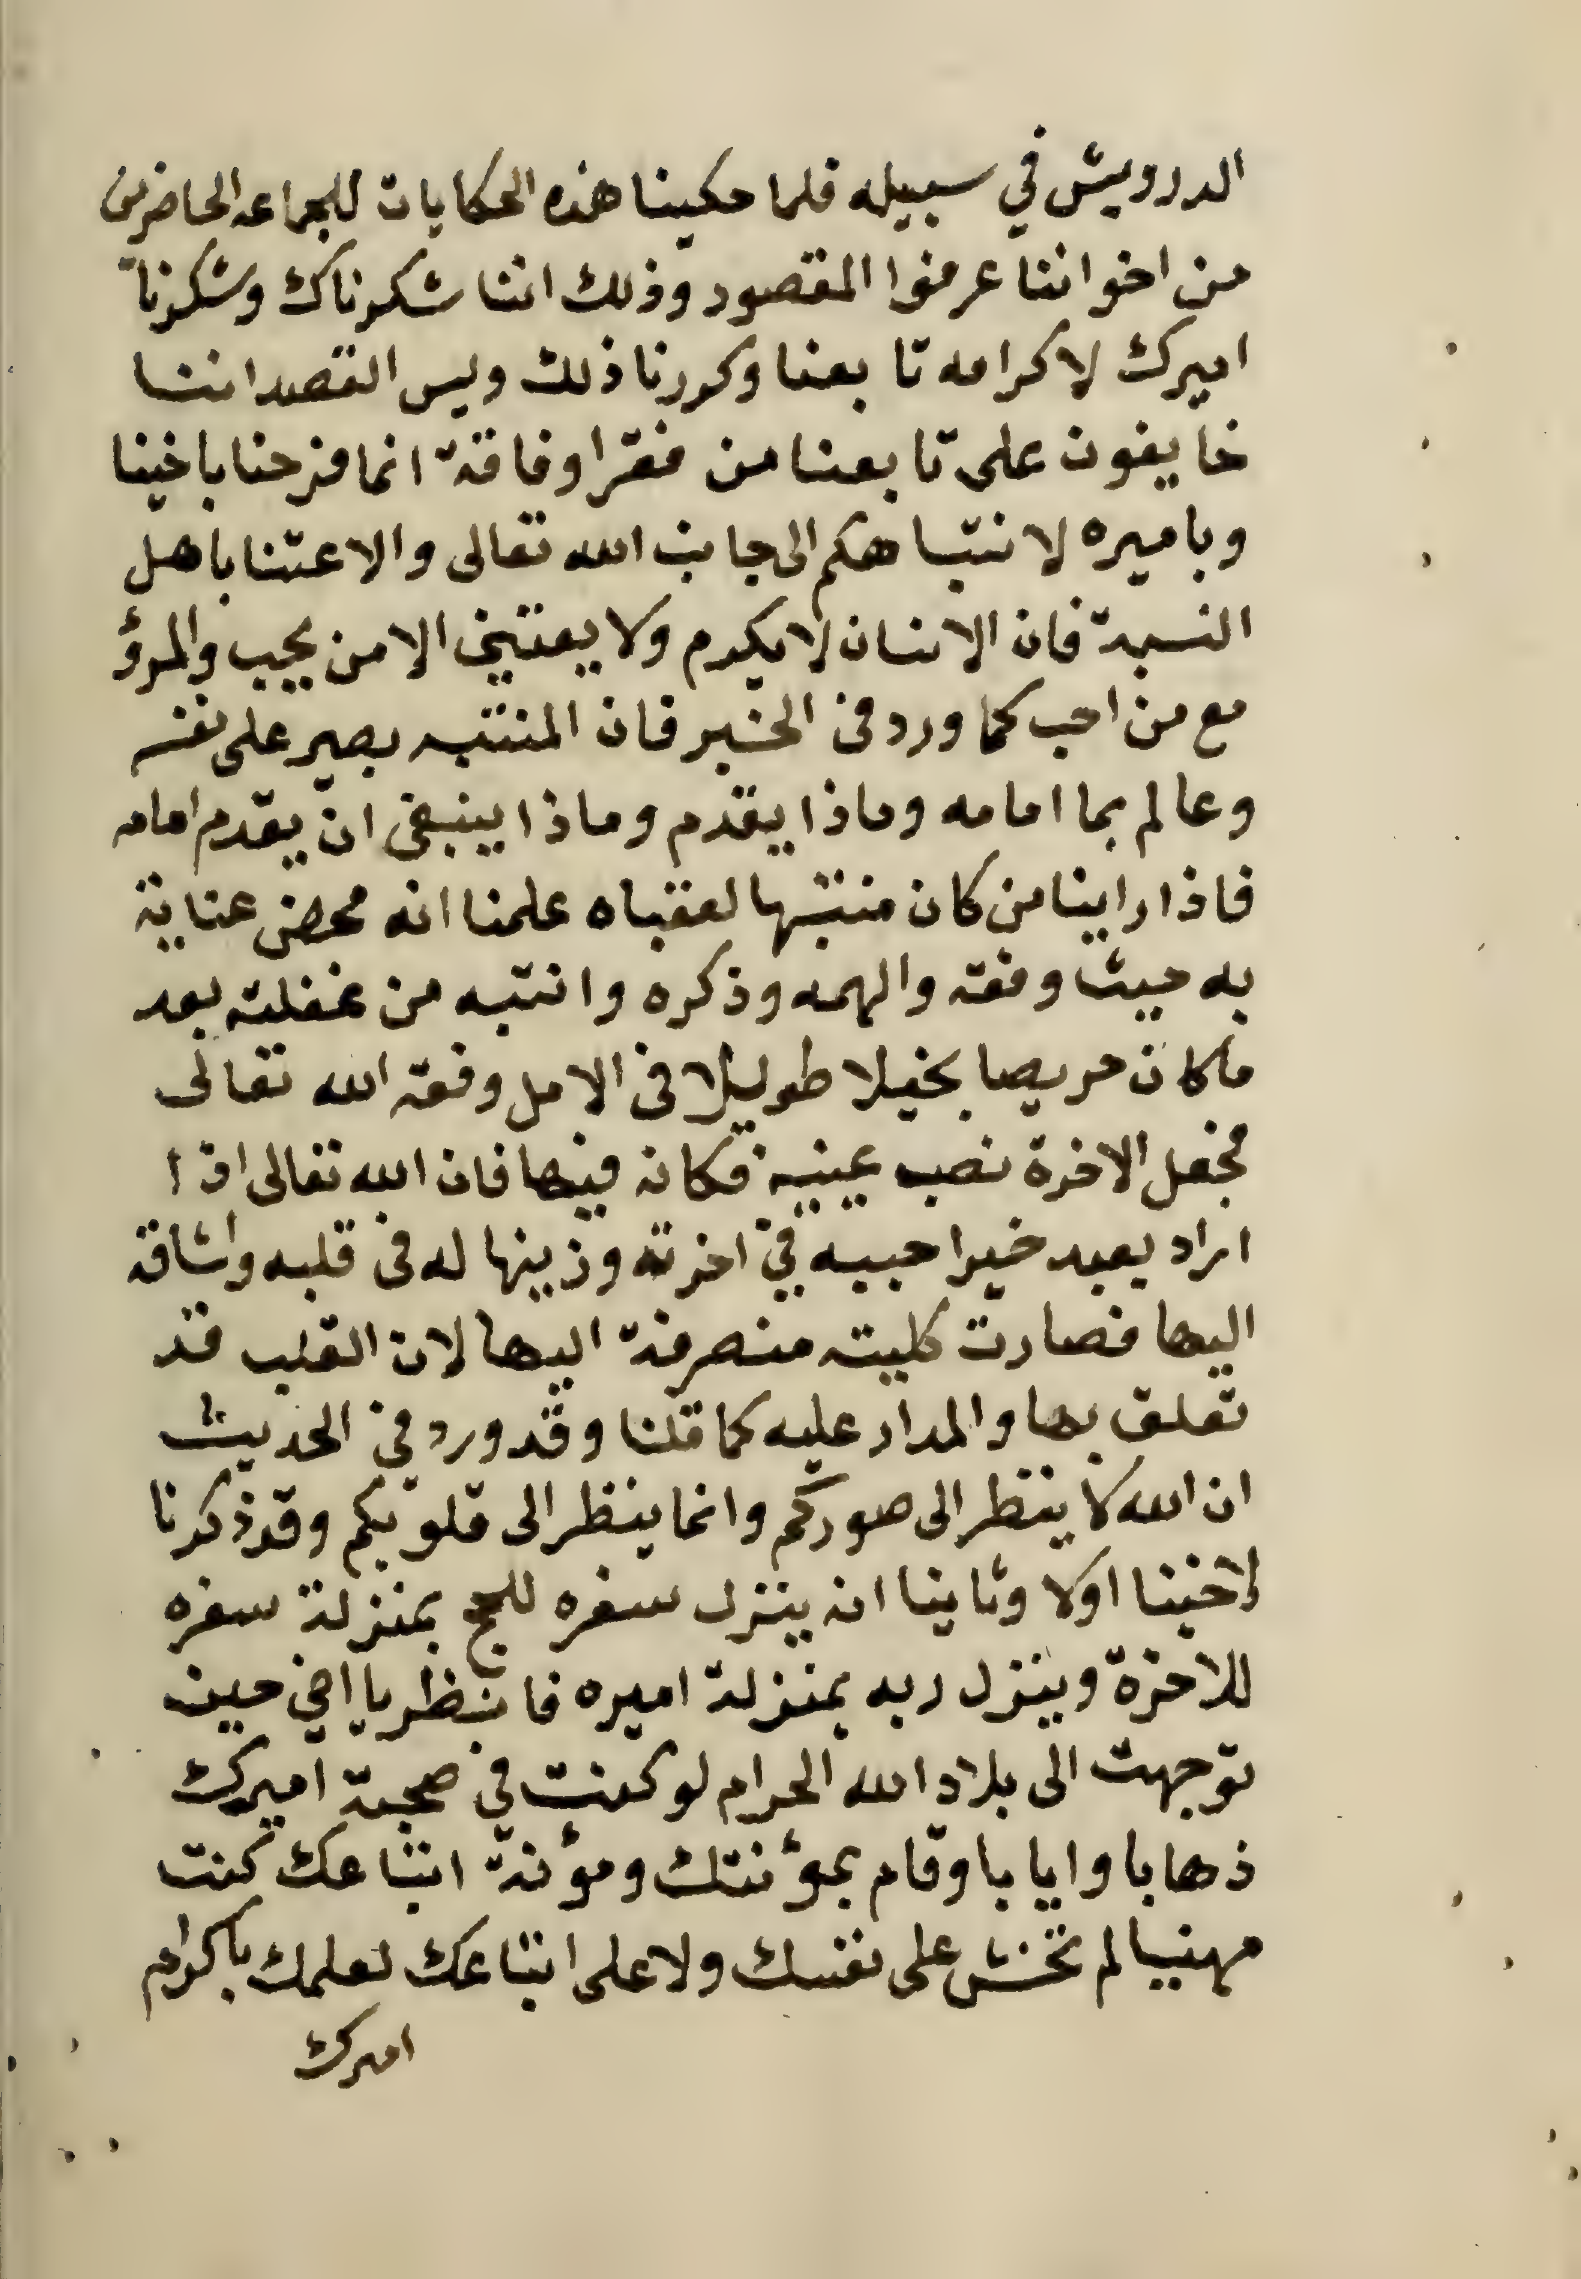 الدرويش في سبيله فلما حكينا هذه الحكايات للجماعه الحاضرين
من اخواننا عرفوا المقصود وذلك اننا شكرناك وشكرنا
اميرك لاكرامه تابعنا وكررنا ذلك وليس القصد اننا
خايفون على تابعنا من فقرا وفاقة انما فرحنا باخينا
وباميره لانتباهكم الى جانب الله تعالى والاعتنا باهل
النسبة فان الانسان لا يكرم ولا يعتني الا من يحب والمرؤ
مع من احب كما ورد في الخبر فان المنتبه بصير على نفسه
وعالم بما امامه وماذا يقدم وماذا ينبغي ان يقدم امامه
فاذا راينا من كان منتبها لعقباه علمنا انه محض عناية
به حيث وفقه والهمه وذكره وانتبه من غفلته بعد
ما كان حريصا بخيلا طويلا في الامل وفقه الله تعالى
فجعل الاخرة نصب عينيه فكانه فيها فان الله تعالى اذا
اراد بعبد خيرا حببه في اخرته وزينها له في قلبه واشاقه
اليها فصارت كليته منصرفة اليها لان القلب قد
تعلق بها والمدار عليه كما قلنا وقد ورد في الحديث
ان الله لا ينظر الى صوركم وانما ينظر الى قلوبكم وقد ذكرنا
لاخينا اولا وثانيا انه ينزل سفره للحج بمنزلة سفره
للاخرة وينزل ربه بمنزلة اميره فانظر يا اخي حين
توجهت الى بلاد الله الحرام لو كنت في صحبة اميرك
ذهابا وايابا وقام بمؤنتك ومؤنة اتباعك كنت
مهنيا لم تخش على نفسك ولا على اتباعك لعلمك باكرام
اميرك